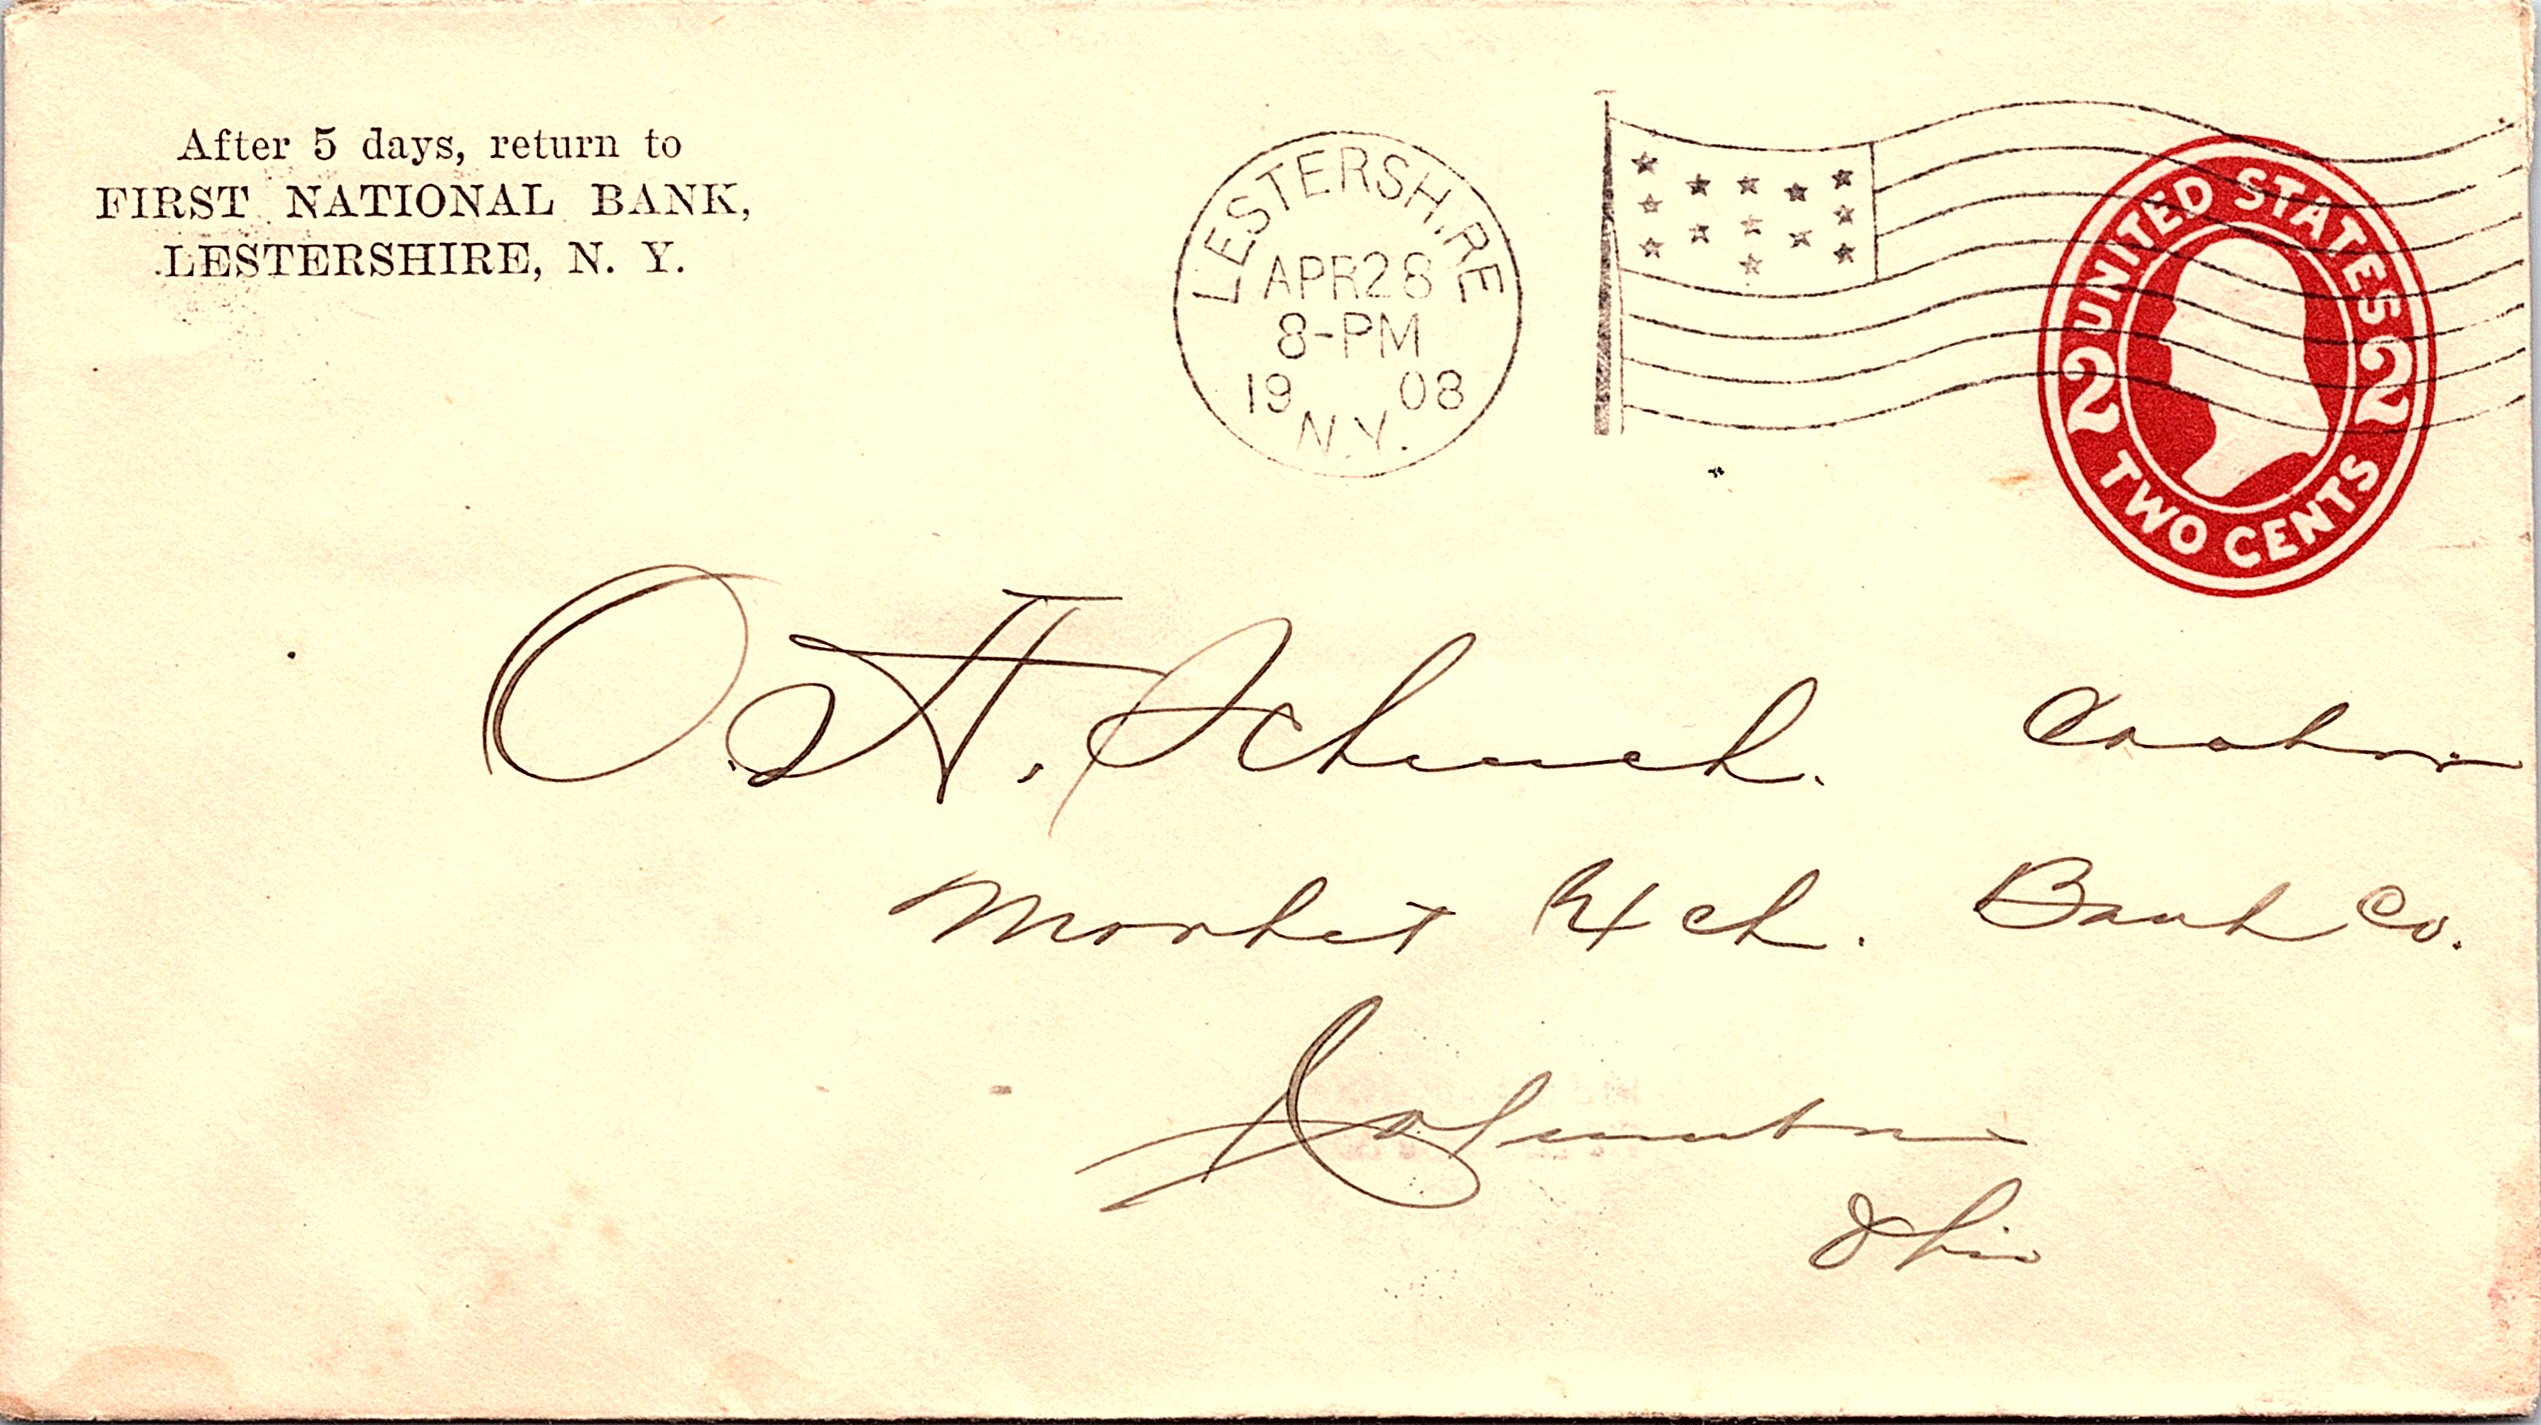 After 5 days, return to
FIRST NATIONAL BANK,
LESTERSHIRE, N. Y.
LESTERSHIRE
APR 28
8-PM
19 08
N.Y.
UNITED STATES
2 2
TWO CENTS
O. H. Schenck. Cashr.
Market Exch. Bank Co.
Columbus
Ohio